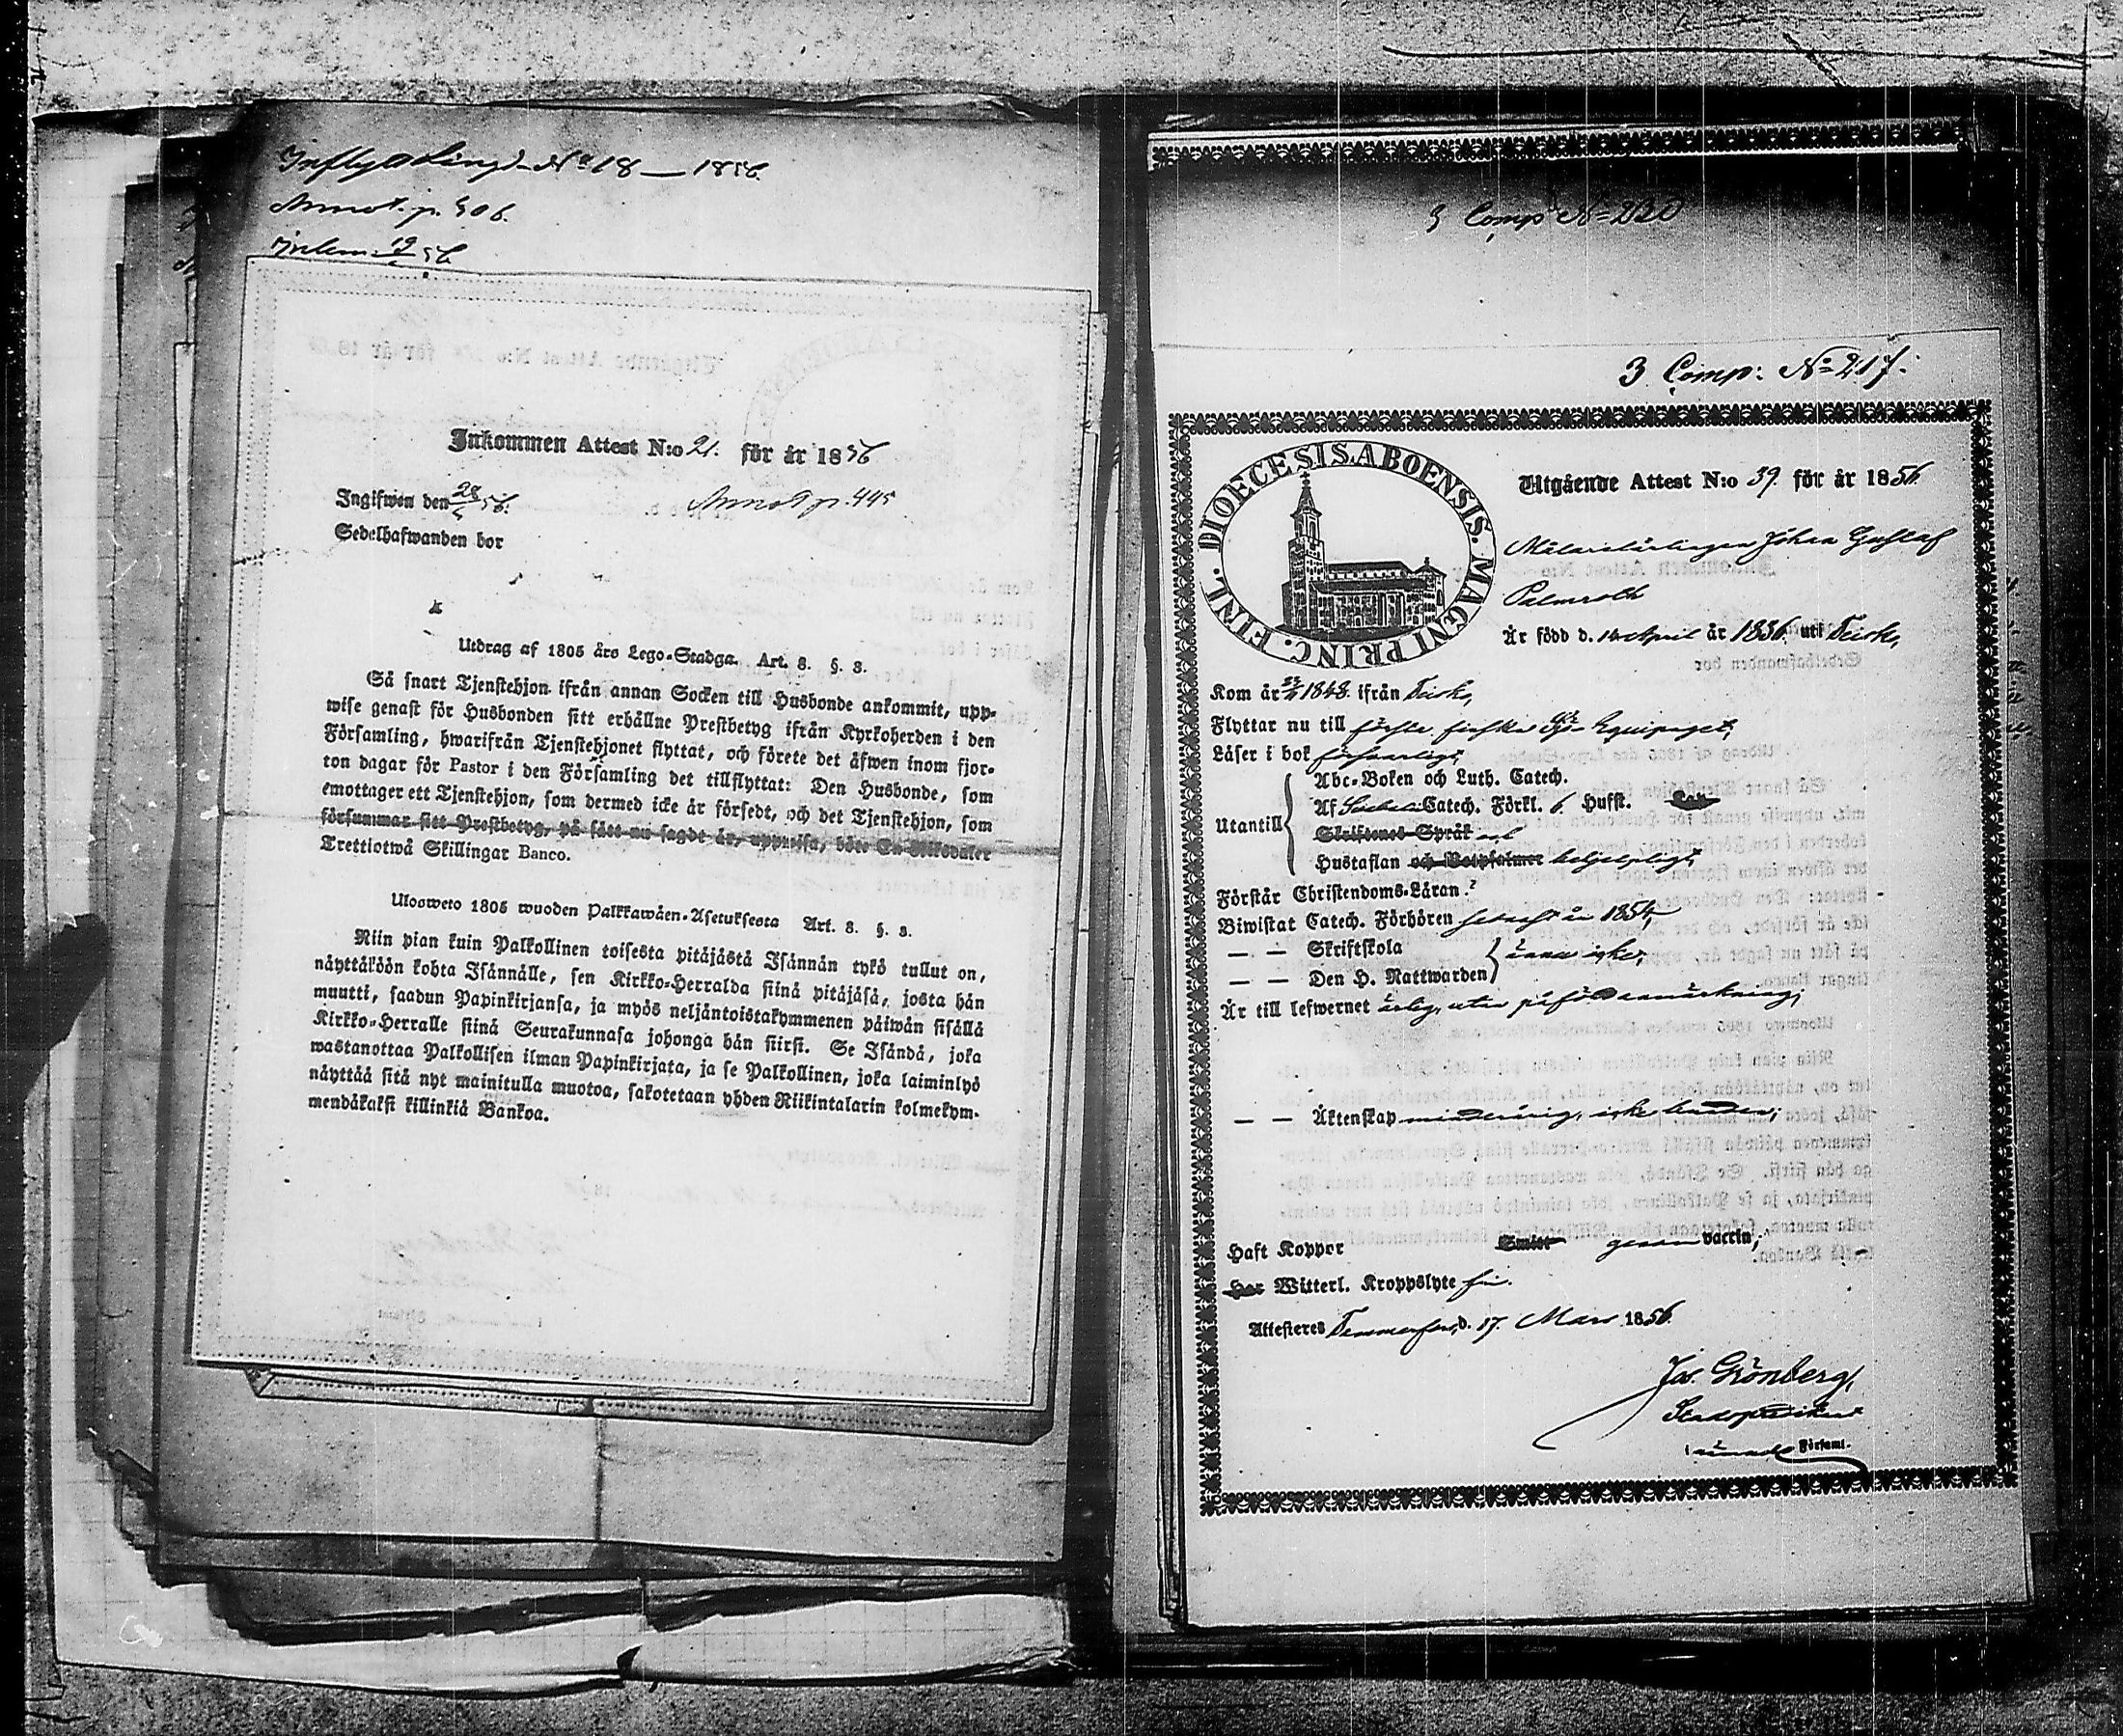 Inflyttningb. No 18 — 1856.
Annot. p. 506.
Inkom. 19/5 56.
Inkommen Attest N:o 21. för år 1856
Ingifwen den 28/5 56. Annot p. 445
Sedelhafwanden bor
Utdrag af 1805 års Lego-Stadga. Art. 8. §. 8.
Så snart Tjenstehjon ifrån annan Socken till Husbonde ankommit, upp-
wise genast för Husbonden sitt erhållne Prestbetyg ifrån Kyrkoherden i den
Församling, hwarifrån Tjenstehjonet flyttat, och förete det äfwen inom fjor-
ton dagar för Pastor i den Församling det tillflyttat: Den Husbonde, som
emottager ett Tjenstehjon, som dermed icke är försedt, och det Tjenstehjon, som
försummar sitt Prestbetyg, på sätt nu sagdt är, uppwisa, böte En Riksdaler
Trettiotwå Skillingar Banco.
Ulosweto 1805 wuoden Palkkawäen-Asetuksesta Art. 8. §. 8.
Niin pian kuin Palkollinen toisesta pitäjästä Isännän tykö tullut on,
näyttäköön kohta Isännälle, sen Kirkko-Herralda siinä pitäjäsä, josta hän
muutti, saadun Papinkirjansa, ja myös neljäntoistakymmenen päiwän sisällä
Kirkko-Herralle siinä Seurakunnasa johonga hän siirsi. Se Isändä, joka
wastanottaa Palkollisen ilman Papinkirjata, ja se Palkollinen, joka laiminlyö
näyttää sitä nyt mainitulla muotoa, sakotetaan yhden Riikintalarin kolmekym-
mendäkaksi killinkiä Bankoa.
3 Comp No 230
3 Comp: No 217.
DIOECESIS ABOENSIS. MAGNI PRINC. FINL.
Utgående Attest N:o 39. för år 1856.
Målarelärlingen Johan Gustaf
Palmroth
Är född d. 14 April år 1836. uti Teisko,
Kom år 1848. ifrån Teisko,
Flyttar nu till första finska Sjö-Equipaget,
Läser i bok försvarligt,
Utantill
Abc-Boken och Luth. Catech.
Af Catech. Förkl. 6. Hufst.
Skriftenes Språk och
Hustaflan och Botpsalmer hjelpligt,
Förstår Christendoms-Läran
Biwistat Catech. Förhören senast år 1854,
— — Skriftskola
— — Den H. Nattwarden
ännu icke,
Är till lefwernet ärlig, utan påföld anmärkning;
— — Äktenskap minderårig, icke bunden;
Haft Koppor Smitt genom vaccin;
Har Witterl. Kroppslyte fri.
Attesteres Tammerfors, d. 17. Mars 1856.
Jos. Grönberg,
Stadspredikant
i nämnde Församl.